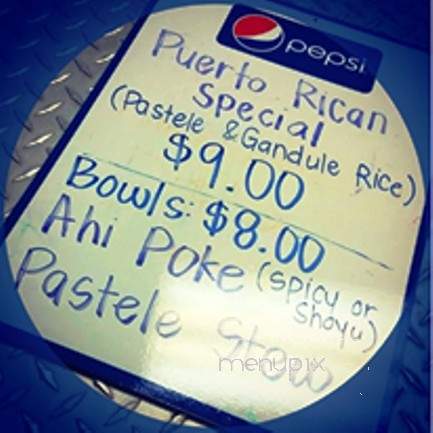 pepsi
Puerto Rican
Special
(Pastele & Gandule Rice)
$9.00
Bowls: $8.00
Ahi Poke (Spicy or
Shoyu)
Pastele Stew
menupix